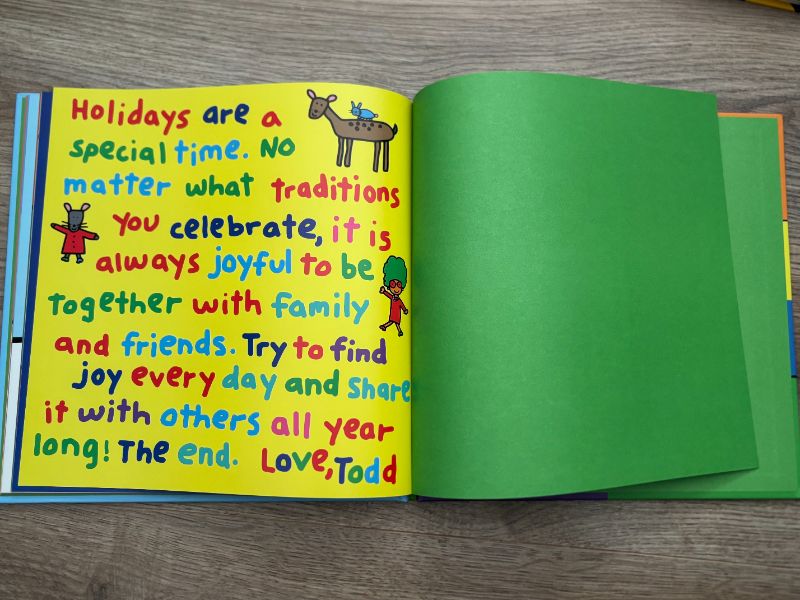 Holidays are a
special time. No
matter what traditions
you celebrate, it is
always joyful to be
together with family
and friends. Try to find
joy every day and share
it with others all year
long! The end. Love, Todd